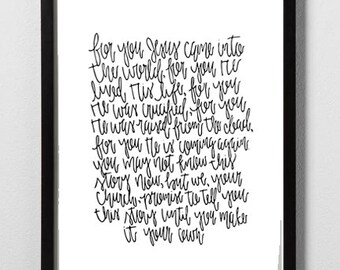 for you Jesus came into
the world, for you He
lived His life, for you
He was crucified, for you
He was raised from the dead,
for you He is coming again.
you may not know this
story now, but we, your
Church, promise to tell you
this story until you make
it your own